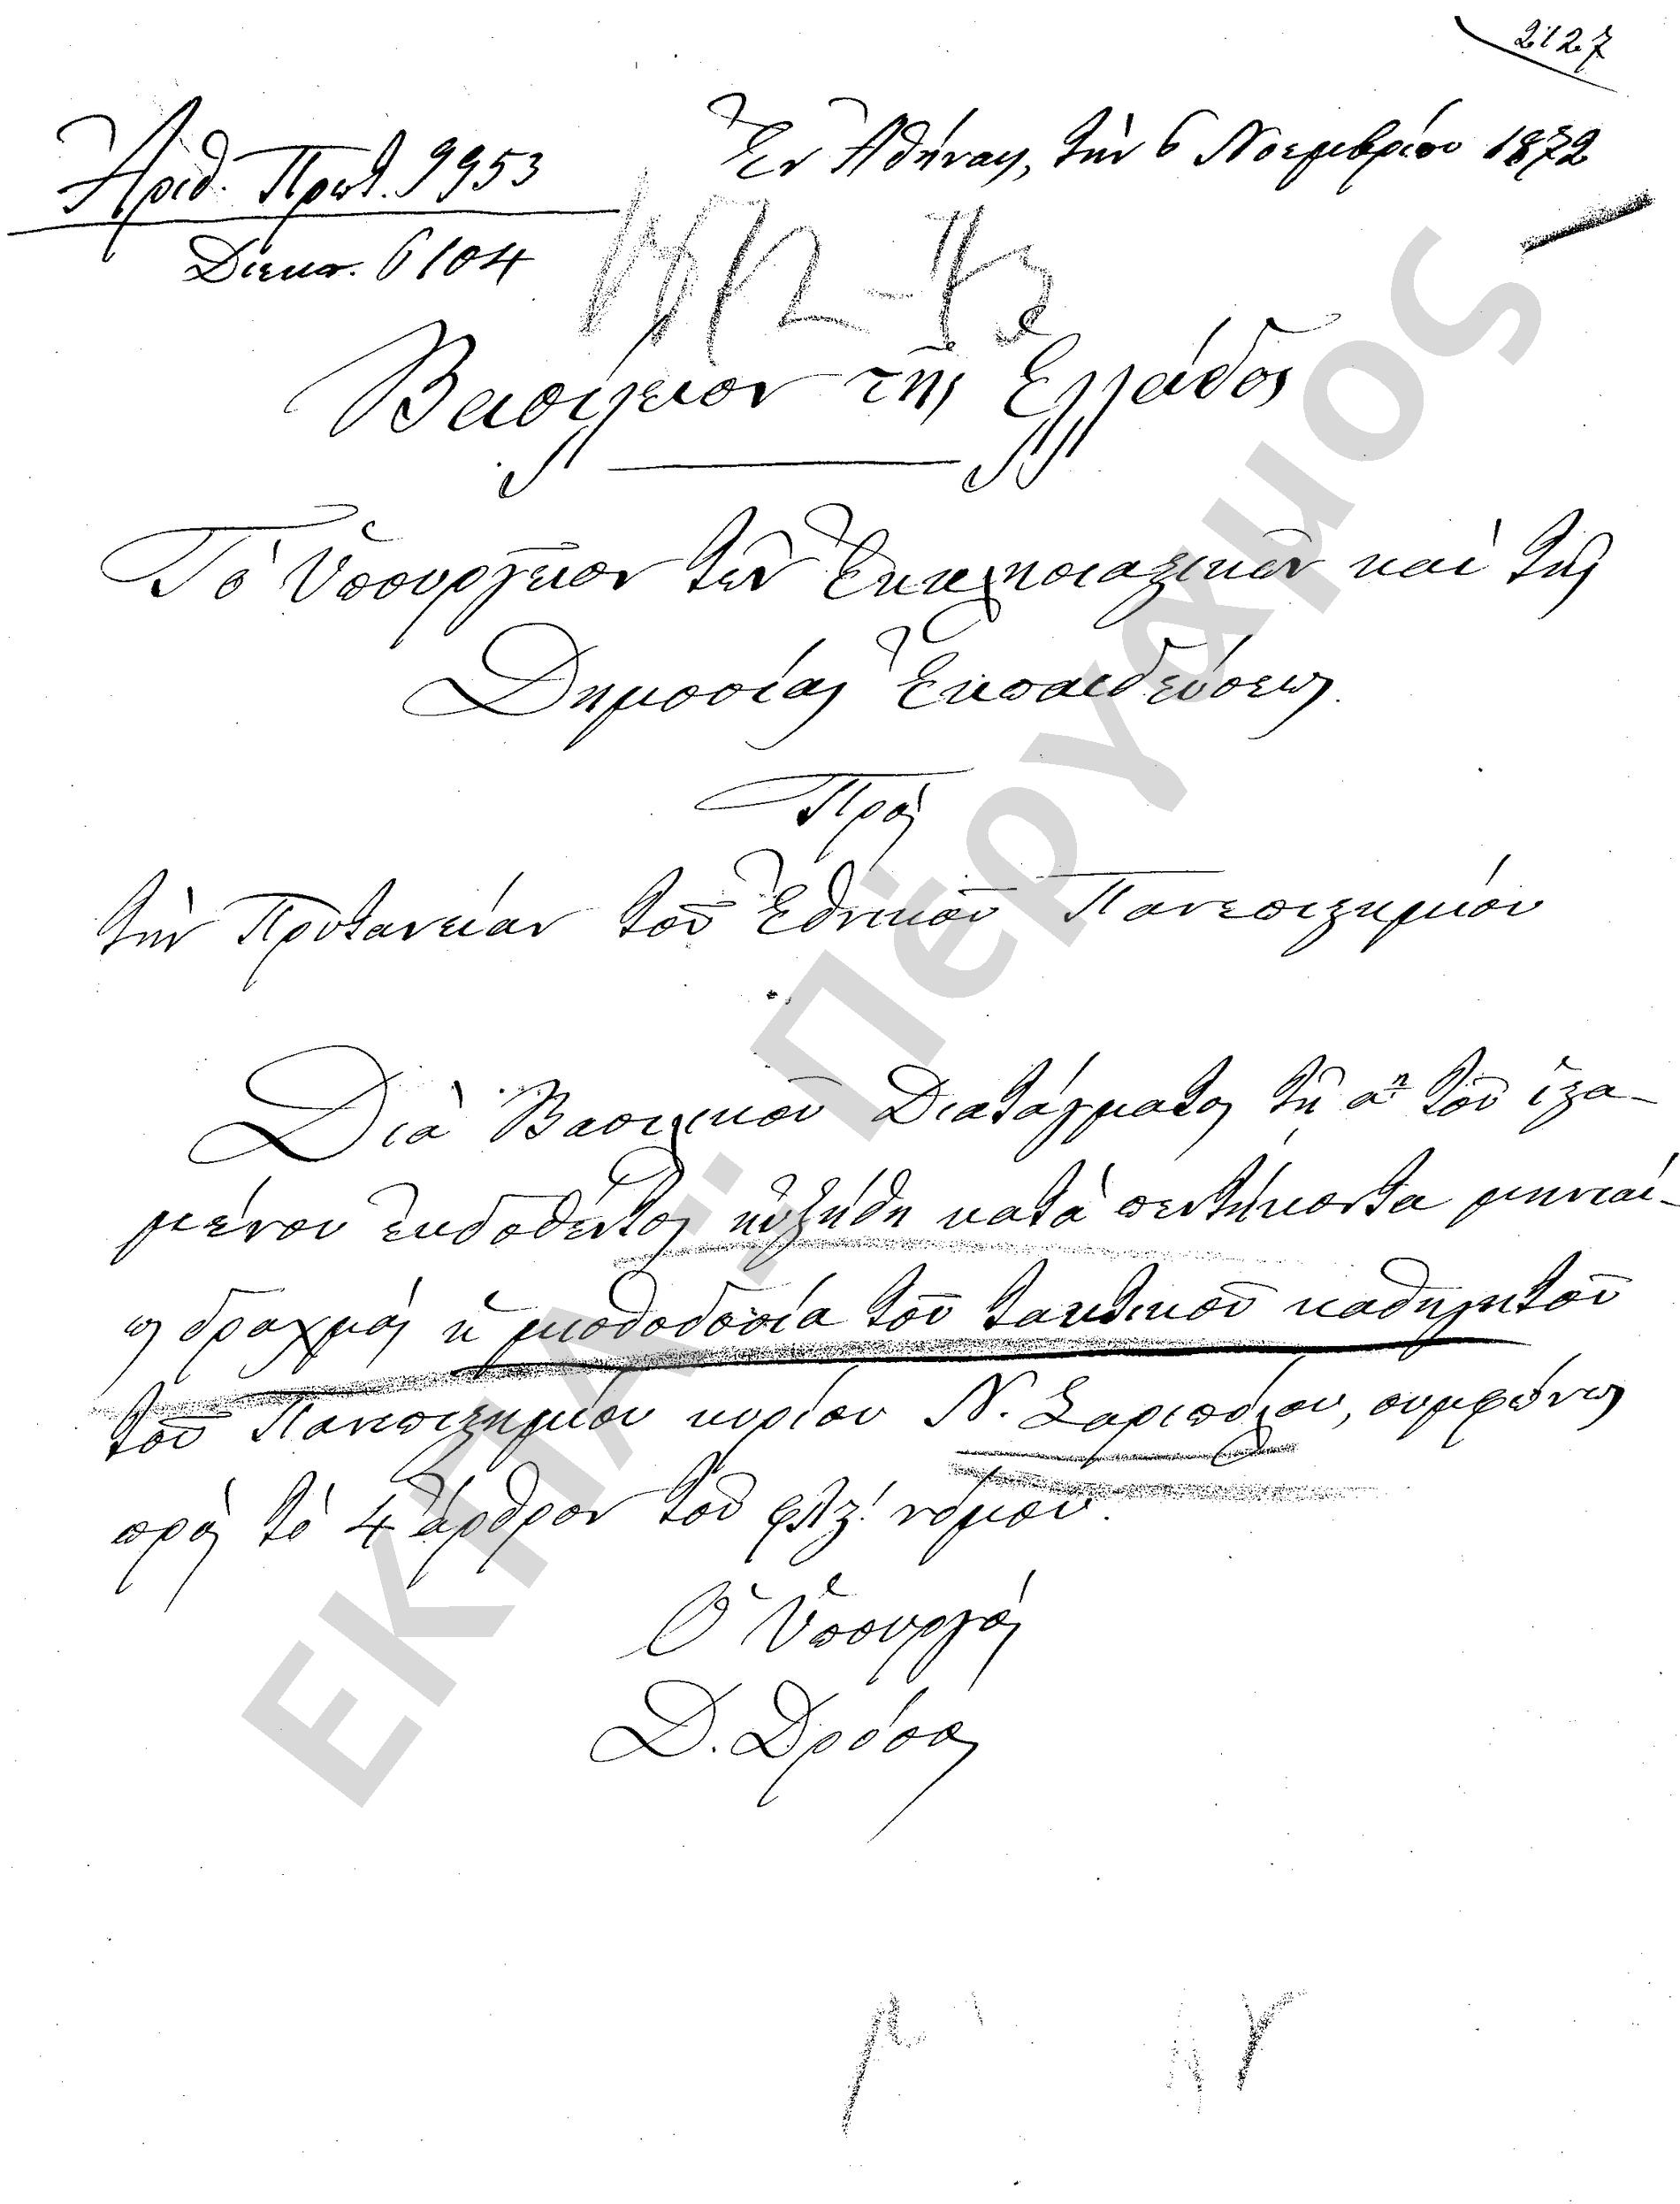 2127
Ἀριθ. Πρωτ. 9953
Ἐν Ἀθήναις, τὴν 6 Νοεμβρίου 1872
Διεκπ. 6104
1872-73
Βασίλειον τῆς Ἑλλάδος
Τὸ Ὑπουργεῖον τῶν Ἐκκλησιαστικῶν καὶ τῆς
Δημοσίας Ἐκπαιδεύσεως.
Πρὸς
τὴν Πρυτανείαν τοῦ Ἐθνικοῦ Πανεπιστημίου
Διὰ Βασιλικοῦ Διατάγματος τῇ αῃ τοῦ ἱστα-
μένου ἐκδοθέντος ηὐξήθη κατὰ πεντήκοντα μηνιαί-
ως δραχμὰς ἡ μισθοδοσία τοῦ τακτικοῦ καθηγητοῦ
τοῦ Πανεπιστημίου κυρίου Ν. Σαριπόλου, συμφώνως
πρὸς τὸ 4 ἄρθρον τοῦ φλζ' νόμου.
Ὁ Ὑπουργὸς
Δ. Δρόσος
ΕΚΠΑ: Πέργαμος